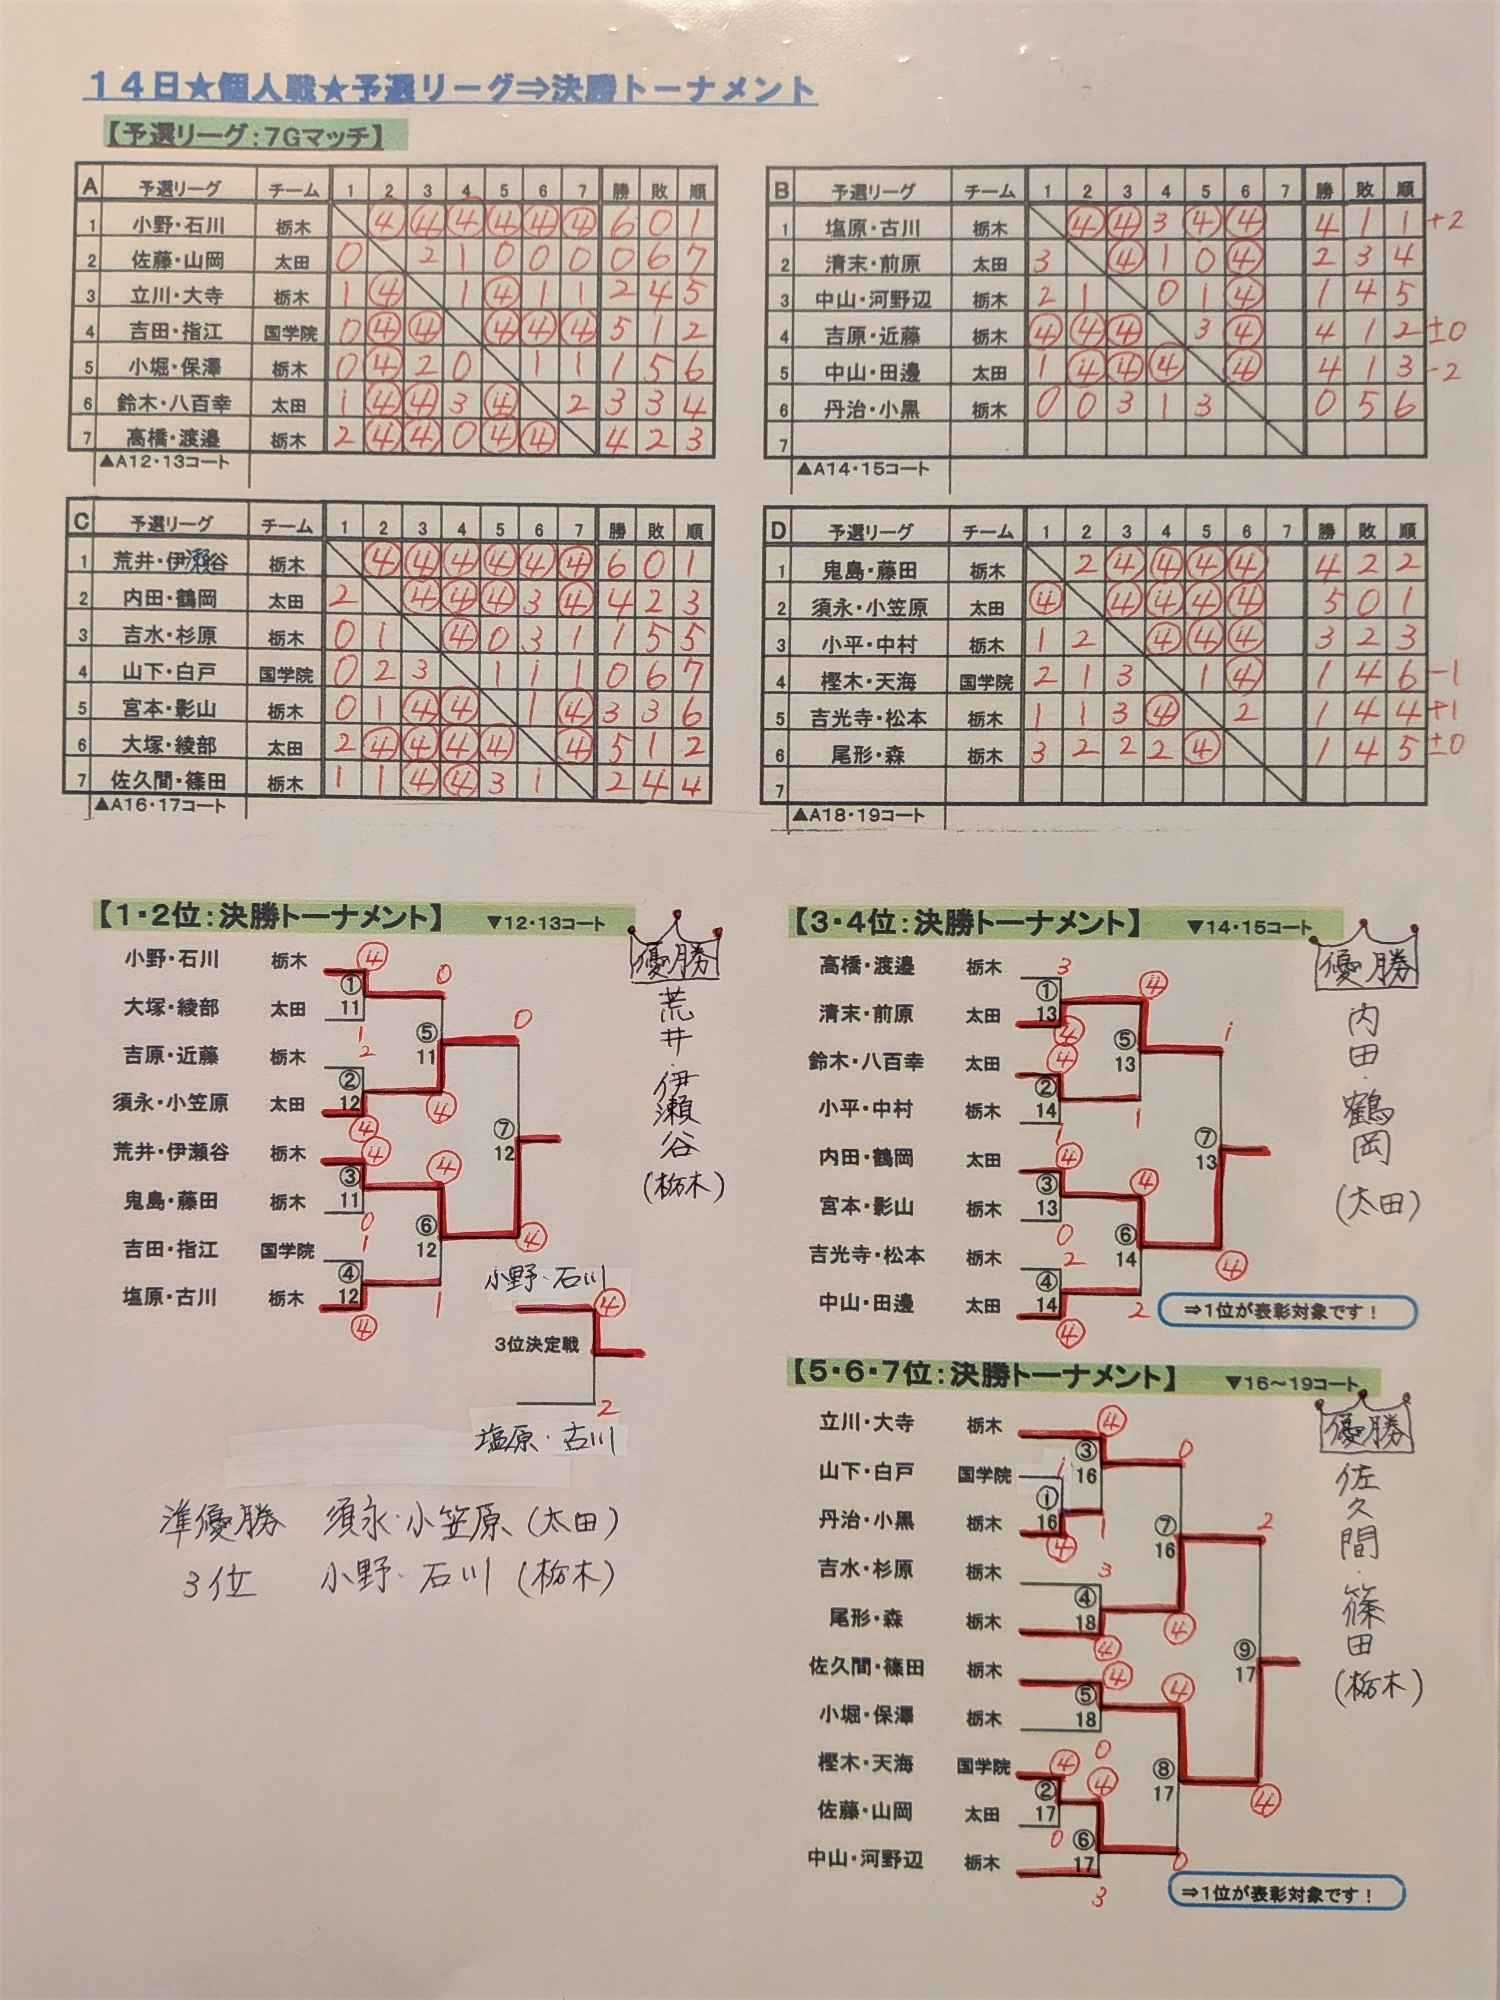 14日★個人戦★予選リーグ⇒決勝トーナメント
【予選リーグ：7Gマッチ】
A 予選リーグ チーム 1 2 3 4 5 6 7 勝 敗 順
1 小野・石川 栃木 ④ ④ ④ ④ ④ ④ 6 0 1
2 佐藤・山岡 太田 0 2 1 0 0 0 0 6 7
3 立川・大寺 栃木 1 ④ 1 ④ 1 1 2 4 5
4 吉田・指江 国学院 0 ④ ④ ④ ④ ④ 5 1 2
5 小堀・保澤 栃木 0 ④ 2 0 1 1 1 5 6
6 鈴木・八百幸 太田 1 ④ ④ 3 ④ 2 3 3 4
7 高橋・渡邉 栃木 2 ④ ④ 0 ④ ④ 4 2 3
▲A12・13コート
B 予選リーグ チーム 1 2 3 4 5 6 7 勝 敗 順
1 塩原・古川 栃木 ④ ④ 3 ④ ④ 4 1 1 +2
2 清末・前原 太田 3 ④ 1 0 ④ 2 3 4
3 中山・河野辺 栃木 2 1 0 1 ④ 1 4 5
4 吉原・近藤 栃木 ④ ④ ④ 3 ④ 4 1 2 ±0
5 中山・田邉 太田 1 ④ ④ ④ ④ 4 1 3 -2
6 丹治・小黒 栃木 0 0 3 1 3 0 5 6
7
▲A14・15コート
C 予選リーグ チーム 1 2 3 4 5 6 7 勝 敗 順
1 荒井・伊瀬谷 栃木 ④ ④ ④ ④ ④ ④ 6 0 1
2 内田・鶴岡 太田 2 ④ ④ ④ 3 ④ 4 2 3
3 吉水・杉原 栃木 0 1 ④ 0 3 1 1 5 5
4 山下・白戸 国学院 0 2 3 1 1 1 0 6 7
5 宮本・影山 栃木 0 1 ④ ④ 1 ④ 3 3 6
6 大塚・綾部 太田 2 ④ ④ ④ ④ ④ 5 1 2
7 佐久間・篠田 栃木 1 1 ④ ④ 3 1 2 4 4
▲A16・17コート
D 予選リーグ チーム 1 2 3 4 5 6 7 勝 敗 順
1 鬼島・藤田 栃木 2 ④ ④ ④ ④ 4 2 2
2 須永・小笠原 太田 ④ ④ ④ ④ ④ 5 0 1
3 小平・中村 栃木 1 2 ④ ④ ④ 3 2 3
4 樫木・天海 国学院 2 1 3 1 ④ 1 4 6 -1
5 吉光寺・松本 栃木 1 1 3 ④ 2 1 4 4 +1
6 尾形・森 栃木 3 2 2 2 ④ 1 4 5 ±0
7
▲A18・19コート
【1・2位：決勝トーナメント】 ▼12・13コート
小野・石川 栃木 ④
① 11 0
大塚・綾部 太田 1
⑤ 11 0
吉原・近藤 栃木 2
② 12 ④
須永・小笠原 太田 ④
⑦ 12
荒井・伊瀬谷 栃木 ④
③ 11 ④
鬼島・藤田 栃木 0
⑥ 12 ④
吉田・指江 国学院 1
④ 12 1
塩原・古川 栃木 ④
優勝
荒井・伊瀬谷
(栃木)
小野・石川 ④
3位決定戦
2
塩原・古川
準優勝 須永・小笠原(太田)
3位 小野・石川(栃木)
【3・4位：決勝トーナメント】 ▼14・15コート
高橋・渡邉 栃木 3
① 13 ④
清末・前原 太田 ④
⑤ 13 1
鈴木・八百幸 太田 ④
② 14 1
小平・中村 栃木 1
⑦ 13
内田・鶴岡 太田 ④
③ 13 ④
宮本・影山 栃木 0
⑥ 14 ④
吉光寺・松本 栃木 2
④ 14 2
中山・田邉 太田 ④
優勝
内田・鶴岡
(太田)
⇒1位が表彰対象です！
【5・6・7位：決勝トーナメント】 ▼16〜19コート
立川・大寺 栃木 ④
③ 16 0
山下・白戸 国学院 1
① 16 1
丹治・小黒 栃木 ④
⑦ 16 2
吉水・杉原 栃木 3
④ 18 ④
尾形・森 栃木 ④
⑨ 17
佐久間・篠田 栃木 ④
⑤ 18 ④
小堀・保澤 栃木 0
⑧ 17 ④
樫木・天海 国学院 ④
② 17 ④
佐藤・山岡 太田 0
⑥ 17 0
中山・河野辺 栃木 3
優勝
佐久間・篠田
(栃木)
⇒1位が表彰対象です！